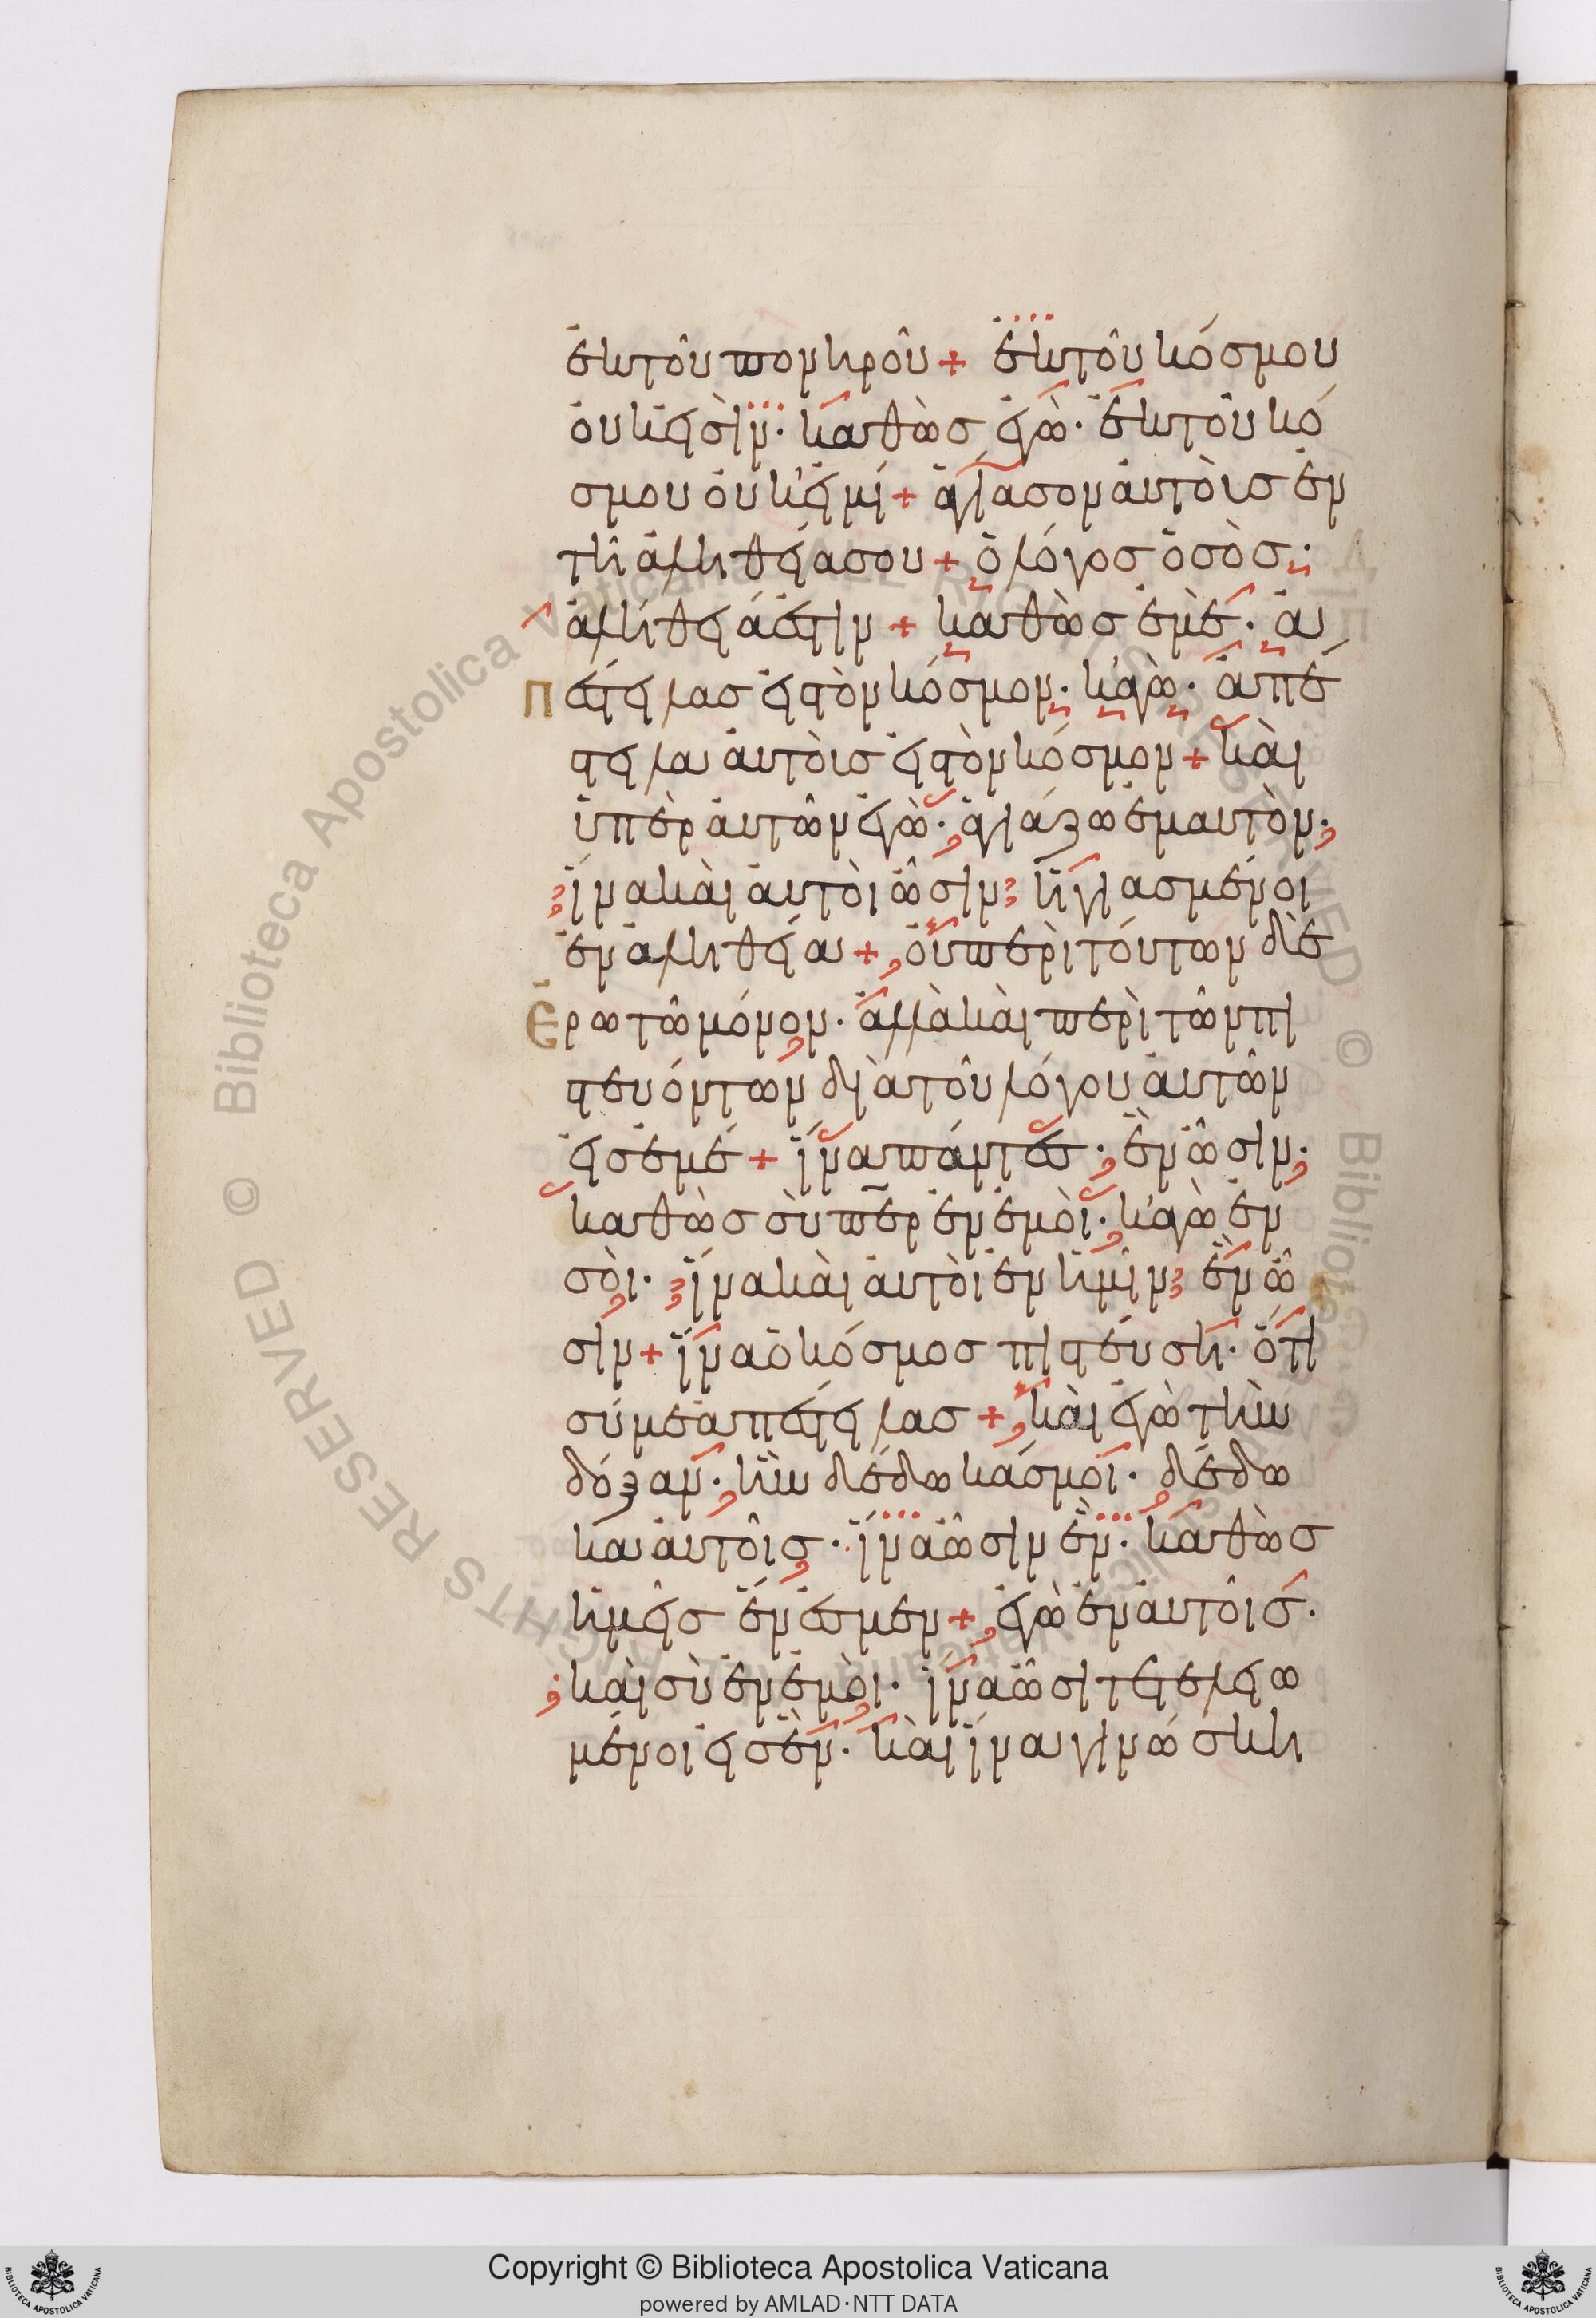 ἐκ τοῦ πονηροῦ + ἐκ τοῦ κόσμου
οὐκ εἰσὶν· καθὼς ἐγὼ· ἐκ τοῦ κό
σμου οὐκ εἰμί + ἁγίασον αὐτοὺς ἐν
τῇ ἀληθείᾳ σου + ὁ λόγος ὁ σὸς·
ἀλήθειά ἐστιν + καθὼς ἐμὲ· ἀ
πέστειλας εἰς τὸν κόσμον· κἀγὼ· ἀπέ
στειλα αὐτοὺς εἰς τὸν κόσμον + καὶ
ὑπὲρ αὐτῶν ἐγὼ· ἁγιάζω ἐμαυτὸν·
ἵνα καὶ αὐτοὶ ὦσιν ἡγιασμένοι
ἐν ἀληθείᾳ + οὐ περὶ τούτων δὲ
ἐρωτῶ μόνον· ἀλλὰ καὶ περὶ τῶν πι
στευόντων διὰ τοῦ λόγου αὐτῶν
εἰς ἐμέ + ἵνα πάντες· ἓν ὦσιν·
καθὼς σὺ περ ἐν ἐμοὶ· κἀγὼ ἐν
σοὶ· ἵνα καὶ αὐτοὶ ἐν ἡμῖν ἓν ὦ
σιν + ἵνα ὁ κόσμος πιστεύσῃ· ὅτι
σύ με ἀπέστειλας + καὶ ἐγὼ τὴν
δόξαν· ἣν δέδωκάς μοι· δέδω
κα αὐτοῖς· ἵνα ὦσιν ἓν· καθὼς
ἡμεῖς ἕν ἐσμεν + ἐγὼ ἐν αὐτοῖς·
καὶ σὺ ἐν ἐμοὶ· ἵνα ὦσι τετελειω
μένοι εἰς ἓν· καὶ ἵνα γινώσκη
Copyright © Biblioteca Apostolica Vaticana
powered by AMLAD·NTT DATA